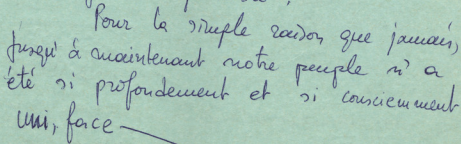 Pour la simple raison que jamais,
jusqu'à maintenant notre peuple n'a
été si profondement et si consciemment
uni, face